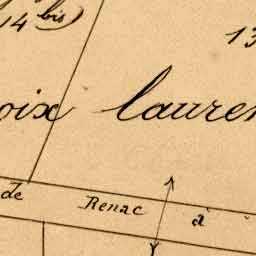 14 bis)
13
oix lauren
de Renac à